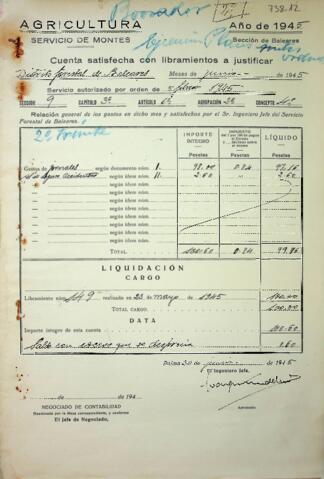 Borrador
738.12
AGRICULTURA
Año de 1945
SERVICIO DE MONTES
Sección de Baleares
Cuenta satisfecha con libramientos a justificar
Distrito forestal de Baleares Meses de junio de 1945
Servicio autorizado por orden de 5 febrero 1945
SECCIÓN 9 CAPÍTULO 3º ARTÍCULO 6º AGRUPACIÓN 2ª CONCEPTO 4º
Relación general de los gastos en dicho mes y satisfechos por el Sr. Ingeniero Jefe del Servicio
Forestal de Baleares.
IMPORTE INTEGRO
IMPUESTO
LÍQUIDO
Pesetas Pesetas Pesetas
Gastos de jornales según documento núm. I. 98.00 0.84 97.16
según ídem núm. II. 2.60 2.60
según ídem núm.
según ídem núm.
según ídem núm.
según ídem núm.
según ídem núm.
según ídem núm.
TOTAL 100.60 0.84 99.76
LIQUIDACIÓN
CARGO
Libramiento núm. 149 realizado en 23 de mayo de 1945 100.00
TOTAL CARGO. 100.00
DATA
Importe íntegro de esta cuenta 100.60
Saldo con exceso que se desprecia 0.60
Palma 30 de junio de 1945
El Ingeniero Jefe,
de de 194
NEGOCIADO DE CONTABILIDAD
Examinada por la Mesa correspondiente, y conforme
El Jefe de Negociado,